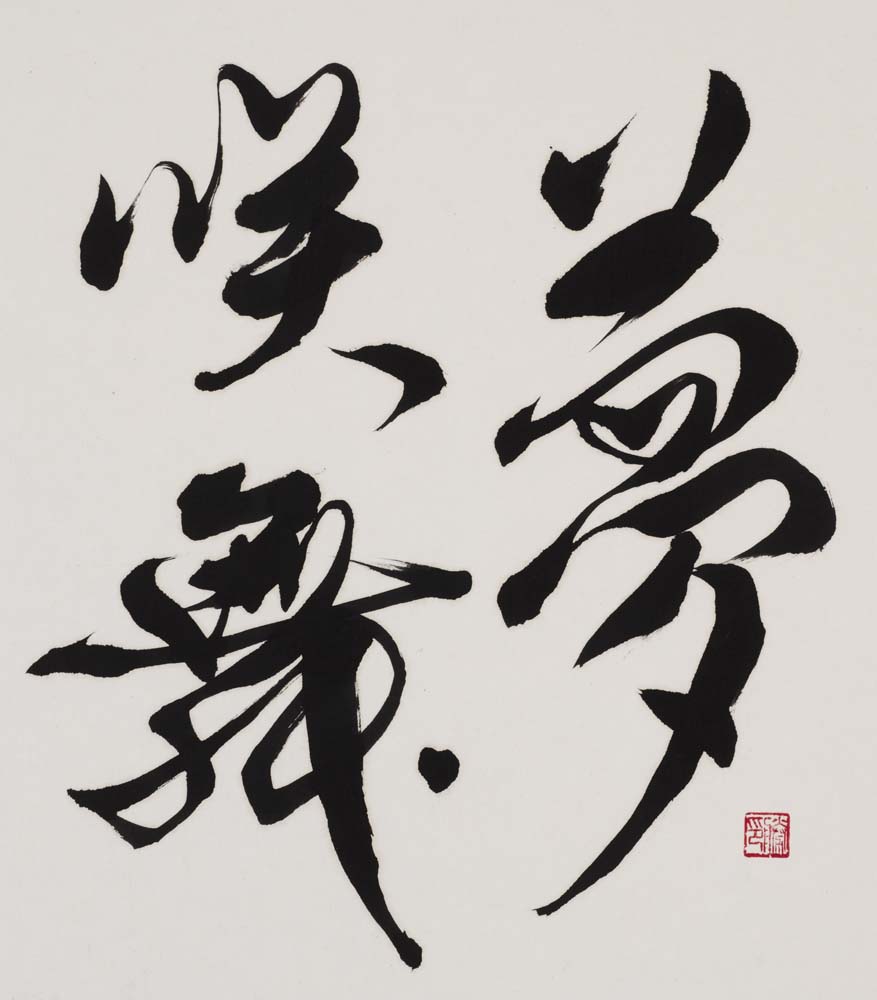 夢
咲舞